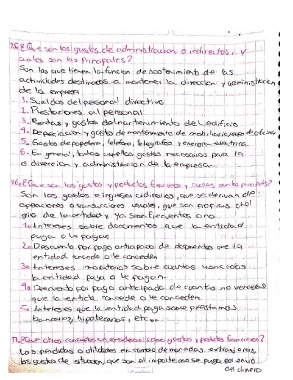 15.¿Que son los gastos de administracion o indirectos, y
cuales son los principales?
Son los que tienen la funcion de sostenimiento de las
actividades destinadas a mantener la direccion y administracion
de la empresa
1. Sueldos del personal directivo
2. Prestaciones al personal
3. Rentas y gastos del mantenimiento del edificio
4. Depreciacion y gasto de mantenimiento de mobiliario
5. Gastos de papeleria, telefono, telegrafos y energia electrica.
6. En general, todos aquellos gastos necesarios para la
direccion y administracion de la empresa.
16.¿Que son los gastos y productos financieros, y cuales son los principales?
Son los gastos e ingresos ordinarios, que se derivan de
operaciones o transacciones usuales, que son propias del
giro de la entidad y ya sean frecuentes o no.
1. Intereses sobre documentos que la entidad
paga o le pagan
2. Descuento por pago anticipado de documentos que la
entidad concede o le conceden
3. Intereses moratorios sobre cuentas vencidas
la entidad paga o le pagan.
4. Descuento por pago anticipado de cuentas no vencidas
que la entidad concede o le conceden
5. Intereses que la entidad paga sobre prestamos
bancarios, hipotecarios, etc..
17.¿Que otros conceptos se consideran como gastos y productos financieros?
Las perdidas o utilidades en cambio de monedas extranjeras,
los gastos de situacion, que son el importe que se paga por envio
del dinero